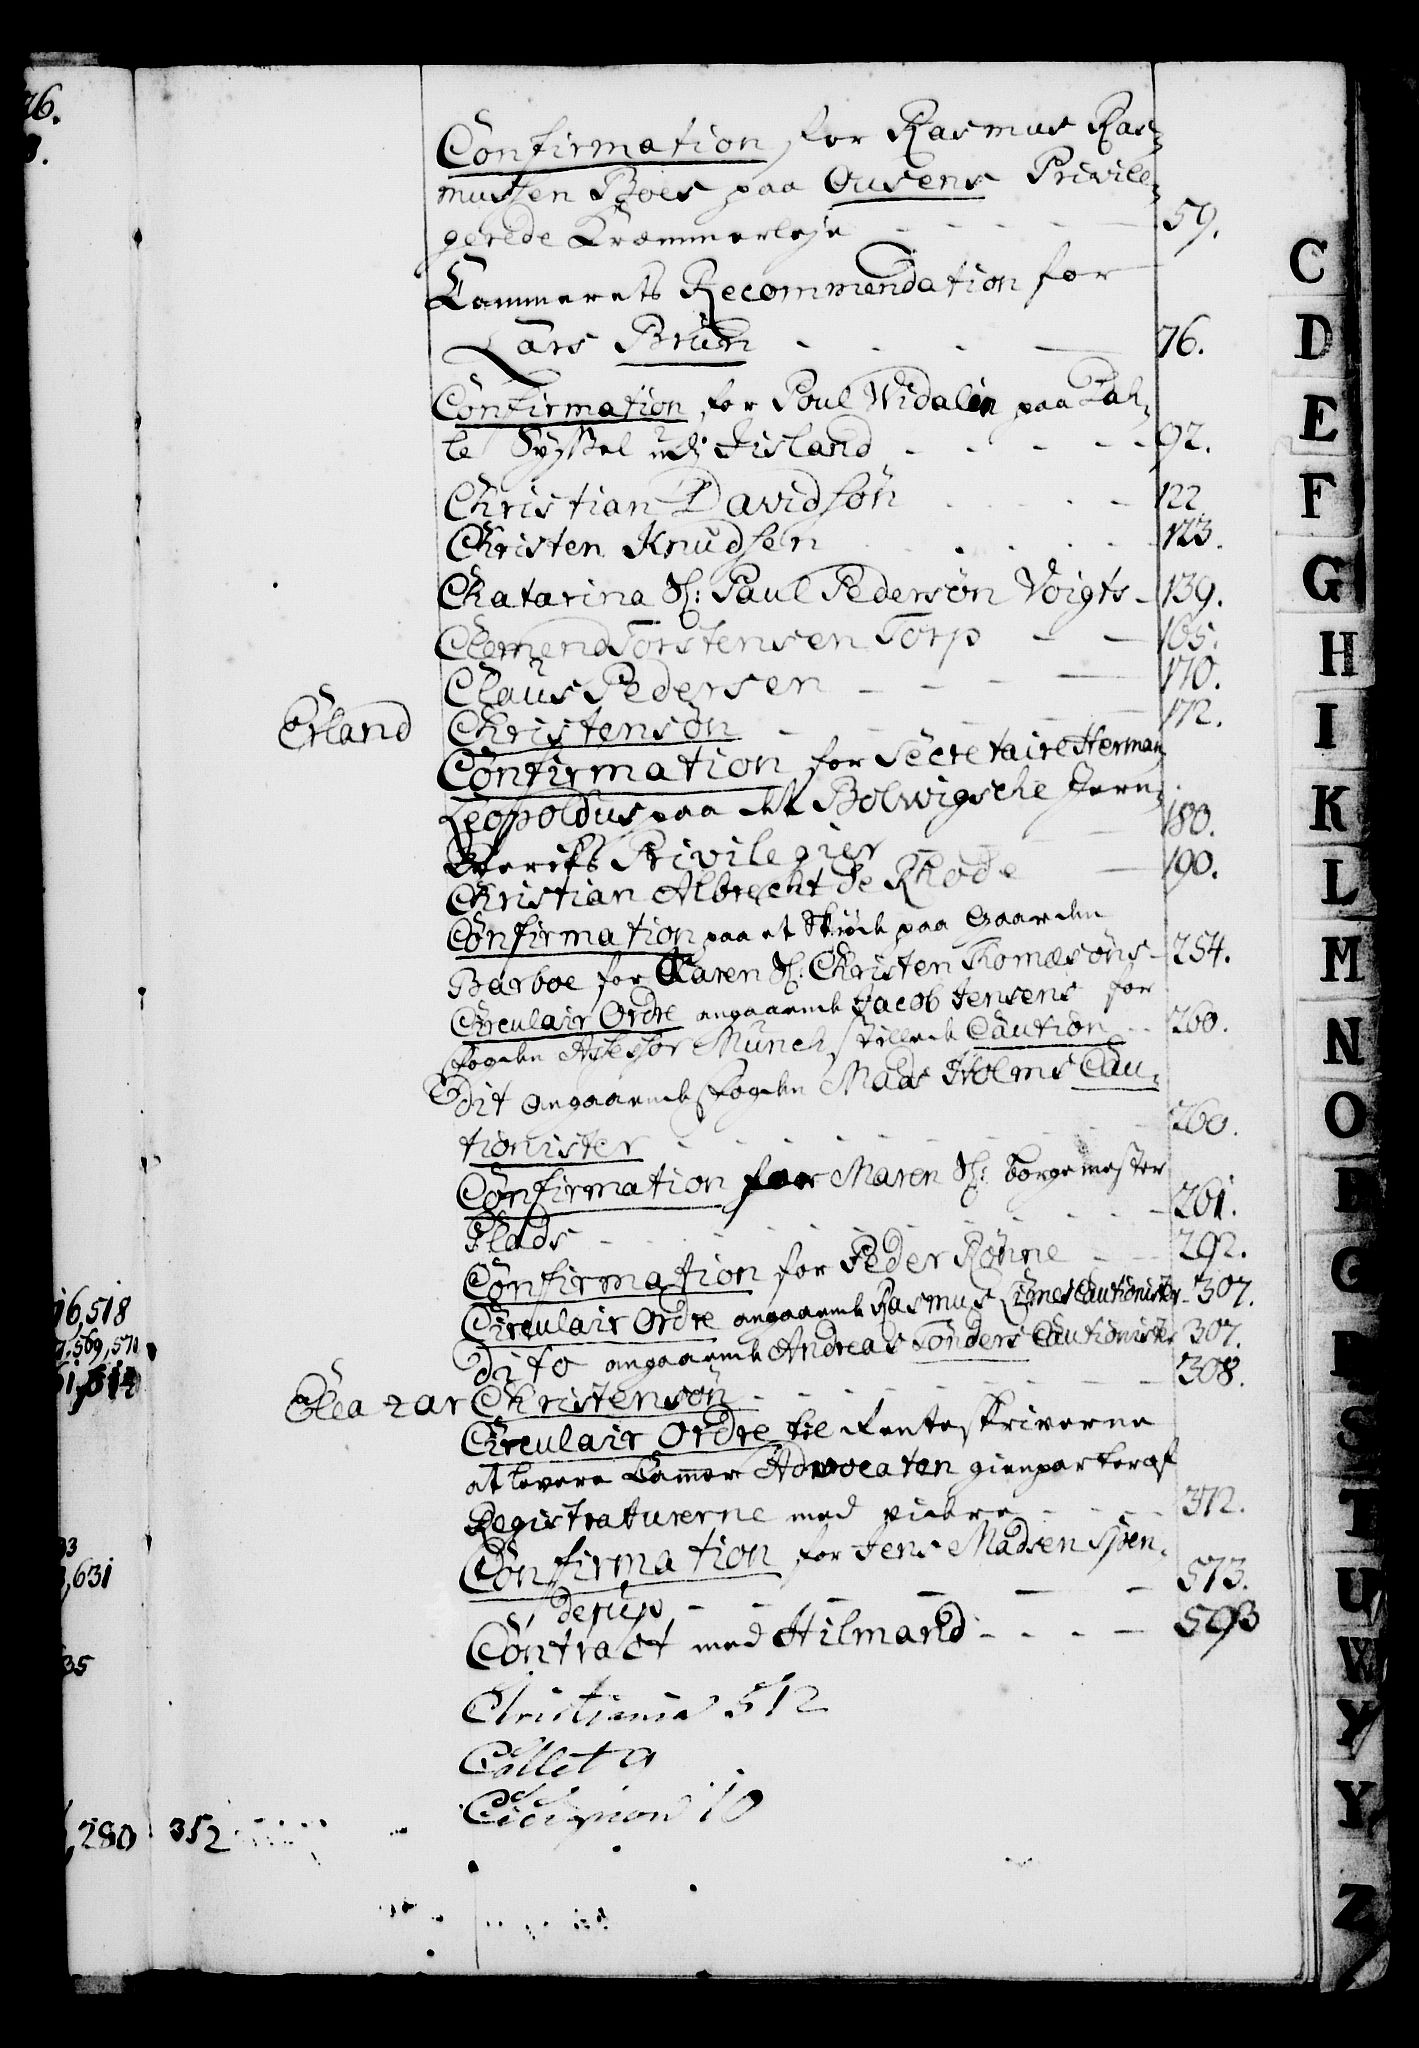 Confirmation for Rasmus Ras-
mussen Boes paa Ousens Privile-
gerede Kræmmerleje - - - - - 59.
Cammerets Recommendation for
Lars Brun - - - - 76.
Confirmation for Poul Widalin paa Dah-
le Syssel udj Jisland - - - - 92.
Christian Davidsøn - - - - 122
Christen Knudsen - - - - 123.
Chatarina Sl: Paul Pedersøn Voigts - 139.
Clemend Torstensen Torp - - 165.
Claus Pedersen - - - - 170.
Erland Christensøn - - - - 172.
Confirmation for Secretaire Herman
Leopoldus paa det Bolvigsche Jern-
Værcks Privilegier - - 180.
Christian Albrecht de Rhode - 190.
Confirmation paa et Skiøde paa Gaarden
Barboe for Karen Sl: Christen Thomæsøns - 254.
Circulair Ordre angaaende Jacob Jensens for
Fogden Assessor Munch stillede Caution - - 260.
Dit angaaende Fogden Mads Holms Cau-
tionister - - - - - - - - 260.
Confirmation for Maren Sl: Borgemester
Flads - - - - - - - - 261.
Confirmation for Peder Rønne - - 292.
Circulair Ordre angaaende Rasmus Lignes Cautionister - 307.
Dito angaaende Andreas Tønders Cautionister 307.
Eleazar Christensøn - - - - - - - - 308.
Circulair Ordre til Renteskriverne
at levere Cammer Advocaten gienparter af
Registraturerne med videre - - - - 312.
Confirmation for Jens Madsen Spen-
derup - - - - - - 573.
Contract med Hilmand - - - - 593
Christiania 512
Collet 9
Cicignon 10
76.
3.
16,518
569,571
631
35
280
352
C
D
E
F
G
H
I
K
L
M
N
O
P
Q
R
S
T
U
W
Y
Y
Z